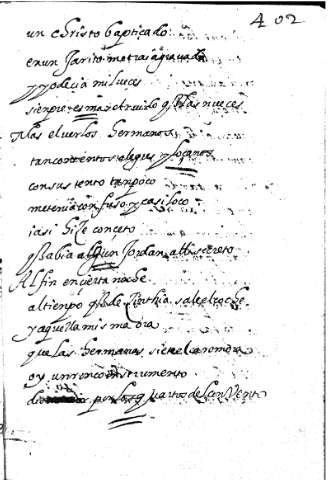 402
un christo baptiçado
en un Jarito metias agua uad
y yo decia mis luces
sienpre es mas el ruido q̃ las nueces
Mas el verlos hermanos
tan contentos alegres y loçanos
con sus tento tanpoco
me tenia confuso y casi loco
i asi hiçe conçeto
q̃ abia algun Jordan alli secreto
Al fin en cierta noche
al tienpo q̃ de Cinthia sale el coche
y aquella misma ora
que las hermanas siete el aromora
oy un ronco instrumento
por los quartos del conVento